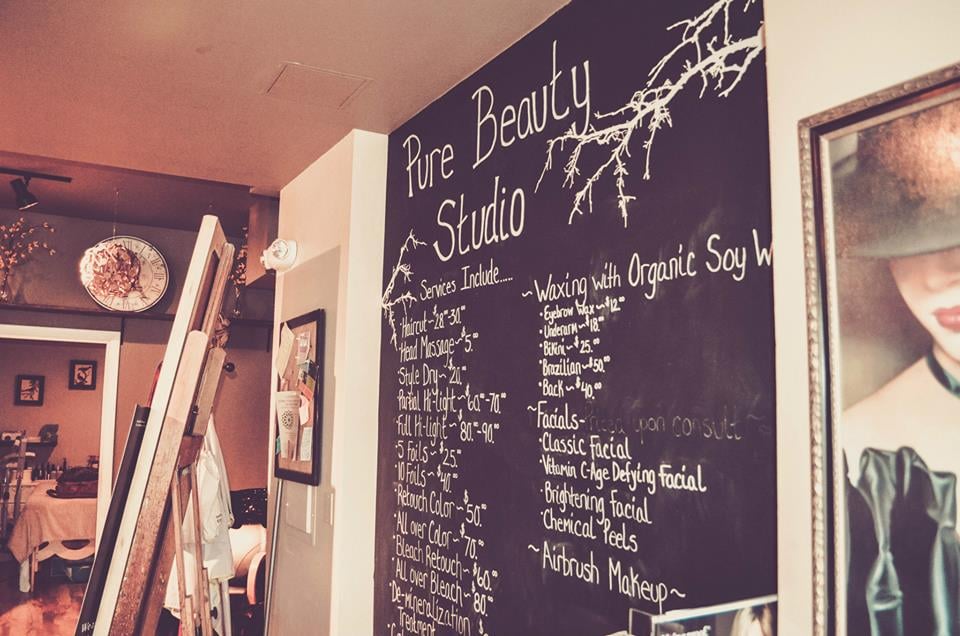 Pure Beauty
Studio
Services Include.....
·Haircut~$28-30.00
·Head Massage~$5.00
Style Dry~$20.00
Partial Hi-Light~$60.00-70.00
·Full Hi-Light~$80.00-90.00
·5 Foils~$25.00
·10 Foils~$40.00
·Retouch Color~$50.00
·All over Color~$70.00
·Bleach Retouch~$60.00
·All over Bleach~$80.00
·De-mineralization
Treatment
~Waxing with Organic Soy W
·Eyebrow Wax~$12.00
·Underarm~$18.00
·Bikini~$25.00
·Brazilian~$50.00
·Back~$40.00
~Facials-Priced upon consult~
·Classic Facial
·Vitamin C-Age Defying Facial
·Brightening Facial
·Chemical Peels
~Airbrush Makeup~